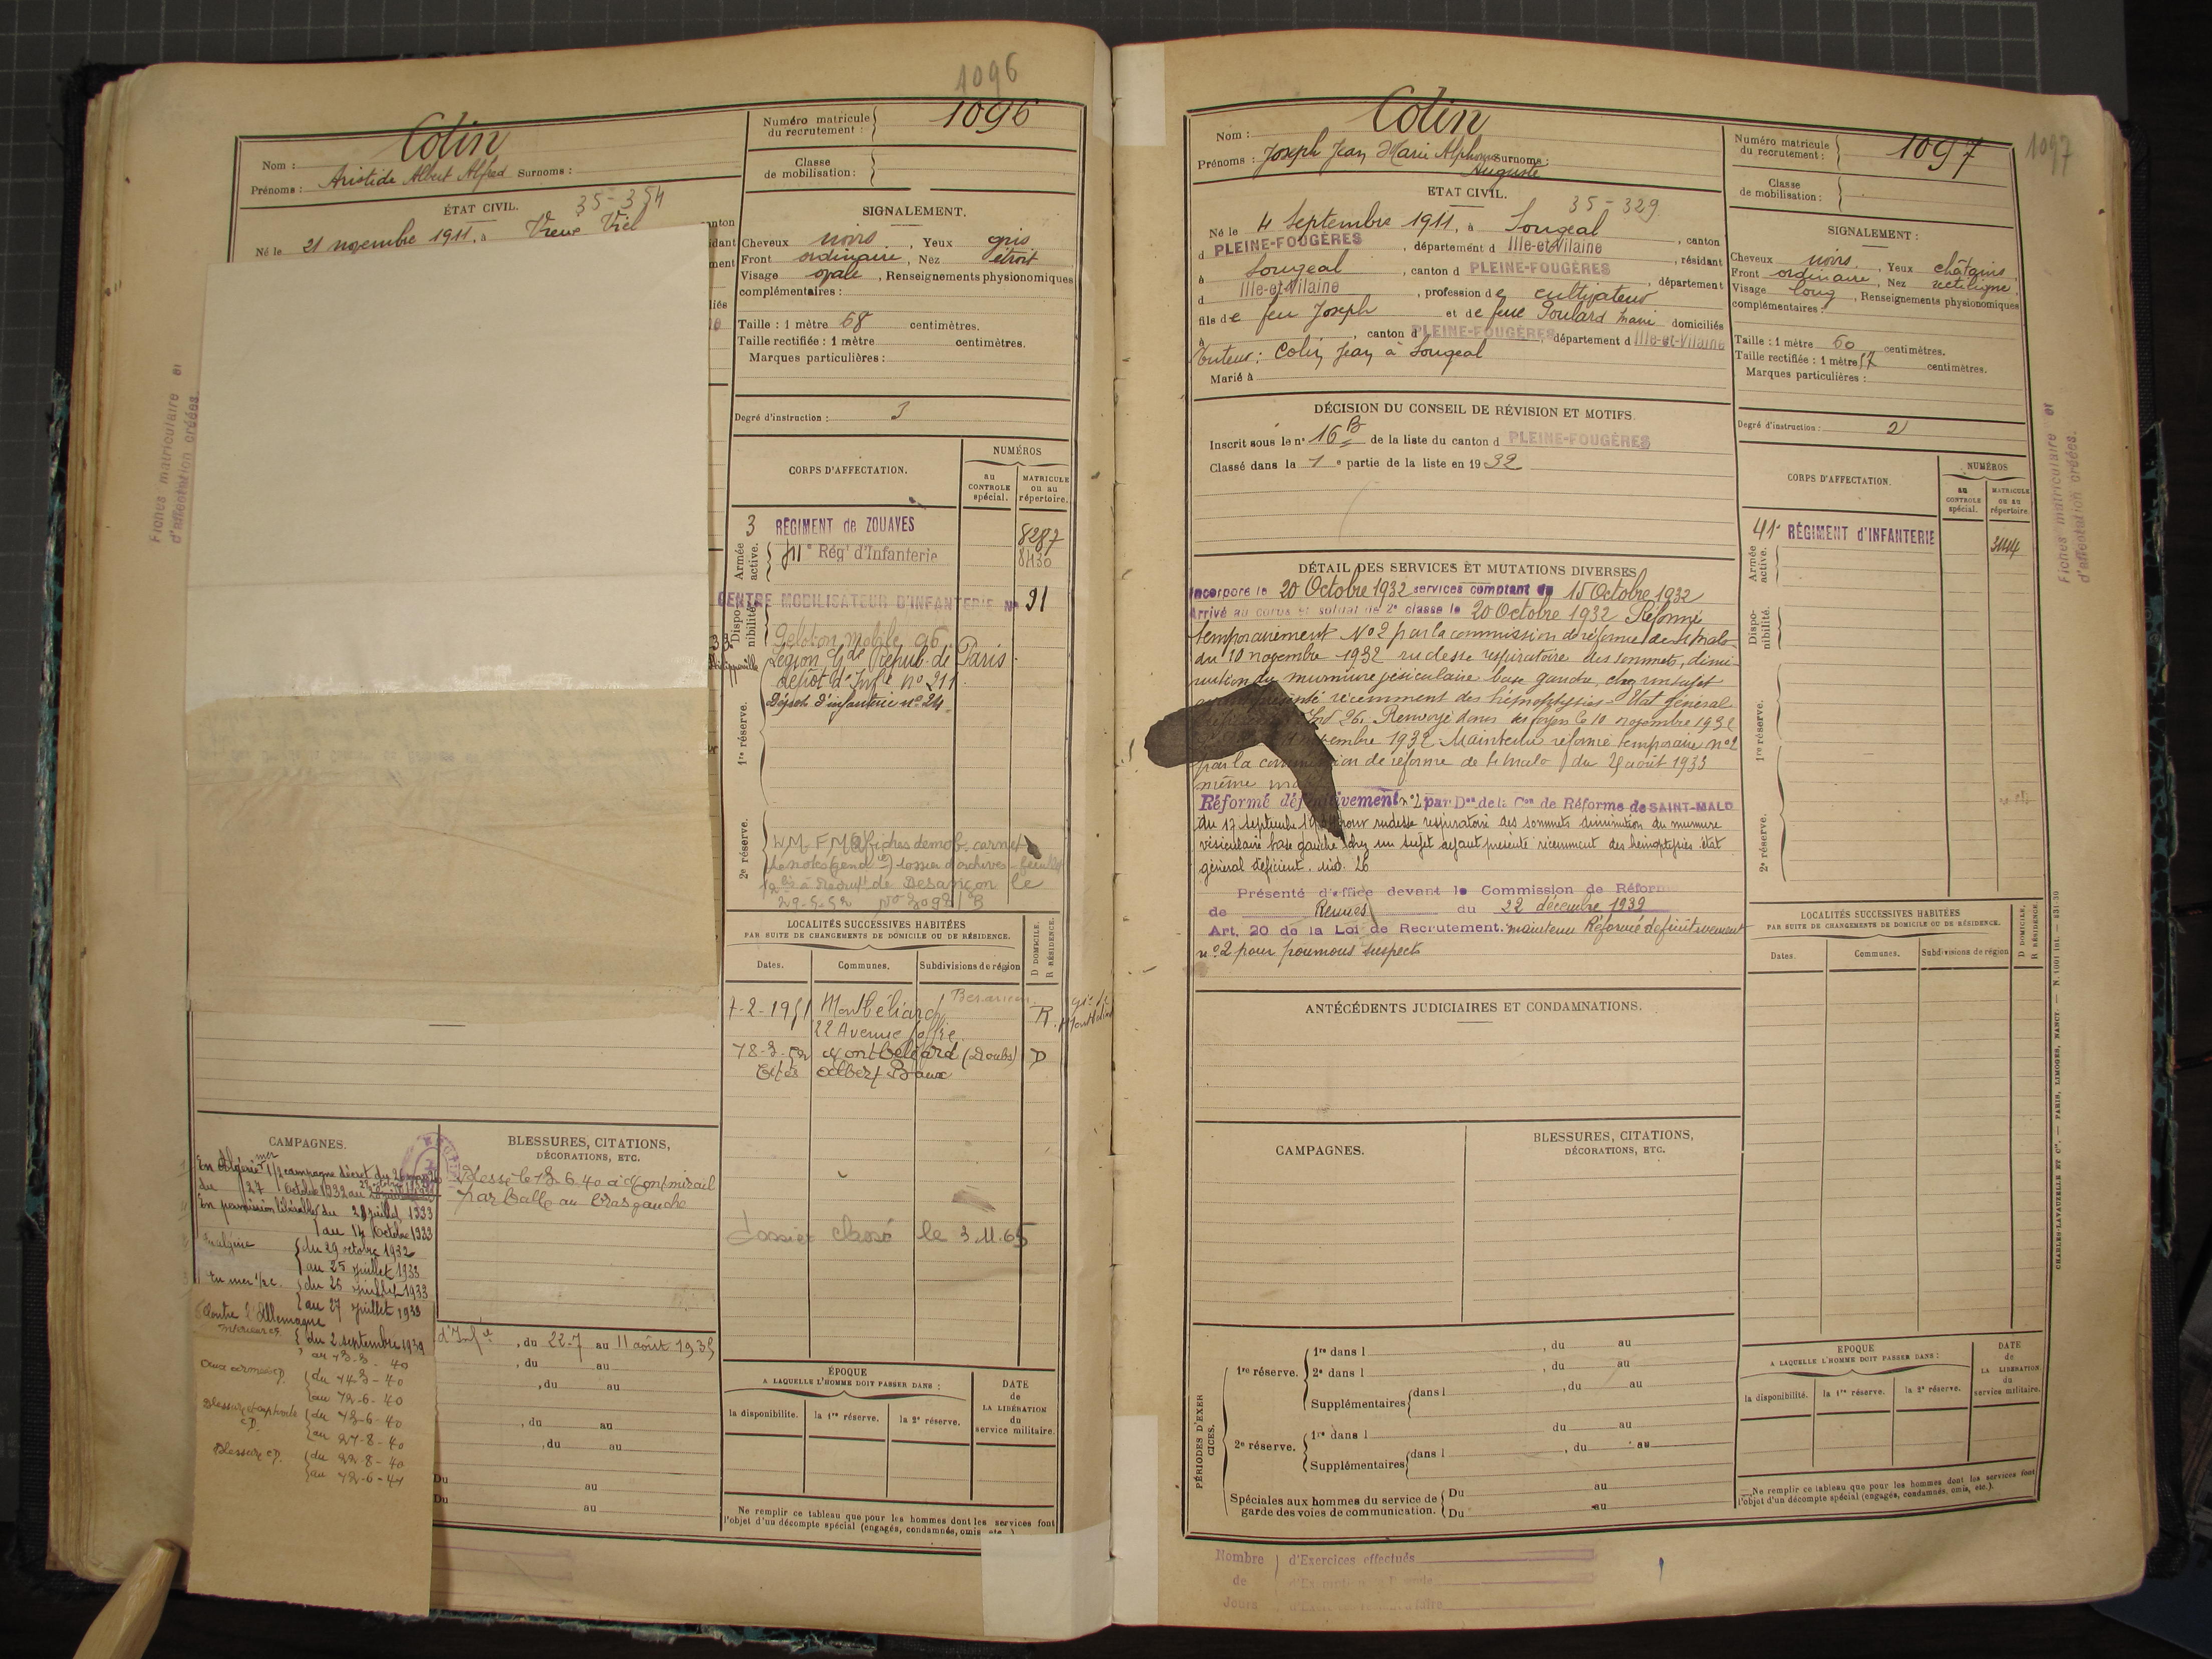 1096
Colin
Nom :
Prénoms : Aristide Albert Alfred Surnoms :
Numéro matricule du recrutement : 1096
Classe de mobilisation :
ÉTAT CIVIL.
35-354
Né le 21 novembre 1911, à Vieux Viel
SIGNALEMENT.
Cheveux noirs, Yeux gris
Front ordinaire, Nez étroit
Visage ovale, Renseignements physionomiques
complémentaires :
Taille : 1 mètre 68 centimètres.
Taille rectifiée : 1 mètre centimètres.
Marques particulières :
Degré d'instruction : 3
Fiches matriculaire et
d'affectation créées.
CORPS D'AFFECTATION.
NUMÉROS
au CONTROLE spécial.
MATRICULE ou au répertoire.
Armée active.
3 RÉGIMENT de ZOUAVES 8287
Rég' d'Infanterie 8430
CENTRE MOBILISATEUR D'INFANTERIE N° 91
Disponibilité.
Peloton Mobile 96
Légion Gde Répub. de Paris
dépôt d'Infie n° 211
Dépôt d'infanterie n° 24
1re réserve.
2e réserve.
fiches demob. carnet
de Besançon le
LOCALITÉS SUCCESSIVES HABITÉES
PAR SUITE DE CHANGEMENTS DE DOMICILE OU DE RÉSIDENCE.
D DOMICILE.
R RÉSIDENCE.
Dates. Communes. Subdivisions de région
7-2-1951 Montbéliard Besançon R
22 Avenue Joffre
Montbéliard (Doubs) D
Albert
CAMPAGNES.
En Algérie 1/2 campagne décret du
du 27 Octobre 1932 au
En permission libérable du 28 juillet 1933
au 14 Octobre 1933
Algérie du 29 octobre 1932
au 25 juillet 1933
En mer 1/2 c. du 26 juillet 1933
au 27 juillet 1933
Contre l'Allemagne
du 2 septembre 1939
au 13-3-40
Aux armées CD. du 14-3-40
au 12-6-40
du 13-6-40
au 21-8-40
Blessure CD. du 22-8-40
au 12-6-41
BLESSURES, CITATIONS,
DÉCORATIONS, ETC.
Blessé le 13.6.40 à Montmirail
par balle au bras gauche
dossier classé le 3.11.65
d'Infie, du 22-7 au 11 août 1935
, du au
, du au
, du au
, du au
Du au
Du au
ÉPOQUE
A LAQUELLE L'HOMME DOIT PASSER DANS :
la disponibilité. la 1re réserve. la 2e réserve.
DATE de LA LIBÉRATION du service militaire.
Ne remplir ce tableau que pour les hommes dont les services font
l'objet d'un décompte spécial (engagés, condamnés, omis, etc.)
1097
Colin
Nom :
Prénoms : Joseph Jean Marie Alphonse Surnoms :
Auguste
Numéro matricule du recrutement : 1097
Classe de mobilisation :
ETAT CIVIL.
35-329
Né le 4 Septembre 1911, à Sougeal, canton
d PLEINE-FOUGÈRES, département d Ille-et-Vilaine, résidant
à Sougeal, canton d PLEINE-FOUGÈRES, département
d Ille-et-Vilaine, profession de cultivateur
fils de feu Joseph et de feue Poulard Marie domiciliés
à , canton d PLEINE-FOUGÈRES, département d Ille-et-Vilaine
Tuteur : Colin Jean à Sougeal
Marié à
SIGNALEMENT :
Cheveux noirs, Yeux châtains
Front ordinaire, Nez rectiligne
Visage long, Renseignements physionomiques
complémentaires :
Taille : 1 mètre 60 centimètres.
Taille rectifiée : 1 mètre 57 centimètres.
Marques particulières :
Degré d'instruction : 2
Fiches matriculaire et
d'affectation créées.
DÉCISION DU CONSEIL DE RÉVISION ET MOTIFS.
Inscrit sous le n° 16 B de la liste du canton d PLEINE-FOUGÈRES
Classé dans la 1e partie de la liste en 1932
DÉTAIL DES SERVICES ET MUTATIONS DIVERSES
Incorporé le 20 Octobre 1932 services comptant du 15 Octobre 1932
Arrivé au corps et soldat de 2e classe le 20 Octobre 1932 Réformé
temporairement N°2 par la commission de réforme de St Malo
du 10 novembre 1932 rudesse respiratoire des sommets, dimi-
nution du murmure vésiculaire base gauche, chez un sujet
récemment des hémoptysies. Etat général
26. Renvoyé dans ses foyers le 10 novembre 1932
1932. Maintenu réformé temporaire n°2
par la commission de réforme de St Malo du août 1933
même
Réformé définitivement n°2 par Don de la Con de Réforme de SAINT-MALO
du 17 septembre pour rudesse respiratoire des sommets diminution du mumure
vésiculaire base gauche chez un sujet ayant présenté récemment des hémoptysies état
général déficient. ind. 26
Présenté d'office devant la Commission de Réforme
de Rennes du 22 décembre 1939
Art. 20 de la Loi de Recrutement. maintenu Réformé définitivement
n°2 pour poumons suspects
CORPS D'AFFECTATION.
NUMÉROS
au CONTROLE spécial.
MATRICULE ou au répertoire.
Armée active.
41e RÉGIMENT d'INFANTERIE
Disponibilité.
1re réserve.
2e réserve.
LOCALITÉS SUCCESSIVES HABITÉES
PAR SUITE DE CHANGEMENTS DE DOMICILE OU DE RÉSIDENCE.
D DOMICILE.
R RÉSIDENCE.
Dates. Communes. Subdivisions de région
ANTÉCÉDENTS JUDICIAIRES ET CONDAMNATIONS.
CAMPAGNES.
BLESSURES, CITATIONS,
DÉCORATIONS, ETC.
PÉRIODES D'EXERCICES.
1re réserve. 1re dans l , du au
2e dans l , du au
Supplémentaires dans l , du au
du au
2e réserve. 1re dans l
Supplémentaires dans l , du au
Spéciales aux hommes du service de garde des voies de communication. Du au
Du au
EPOQUE
A LAQUELLE L'HOMME DOIT PASSER DANS :
la disponibilité. la 1re réserve. la 2e réserve.
DATE de LA LIBÉRATION du service militaire.
Ne remplir ce tableau que pour les hommes dont les services font
l'objet d'un décompte spécial (engagés, condamnés, omis, etc.).
Nombre de Jours
d'Exercices effectués
CHARLES-LAVAUZELLE ET Cie. — PARIS, LIMOGES, NANCY.